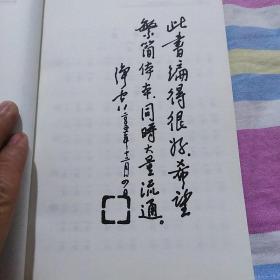 此書編得很好希望
繁簡体本同時大量流通。
淨空 年十二月 日